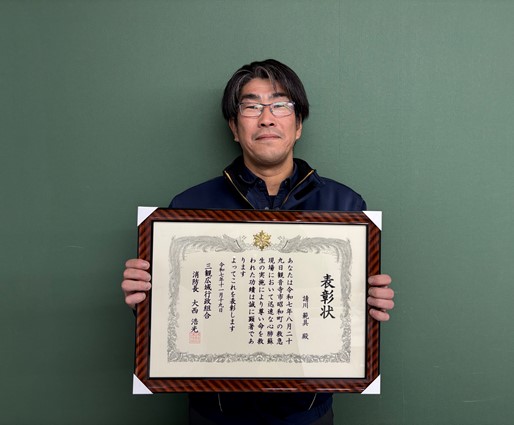 表彰状
請川 範具 殿
あなたは令和七年八月二十
九日観音寺市昭和町の救急
現場において迅速な心肺蘇
生の実施により尊い命を救
われた功績は誠に顕著であ
ります
よってこれを表彰します
令和七年十一月十九日
三観広域行政組合
消防長 大西 浩光